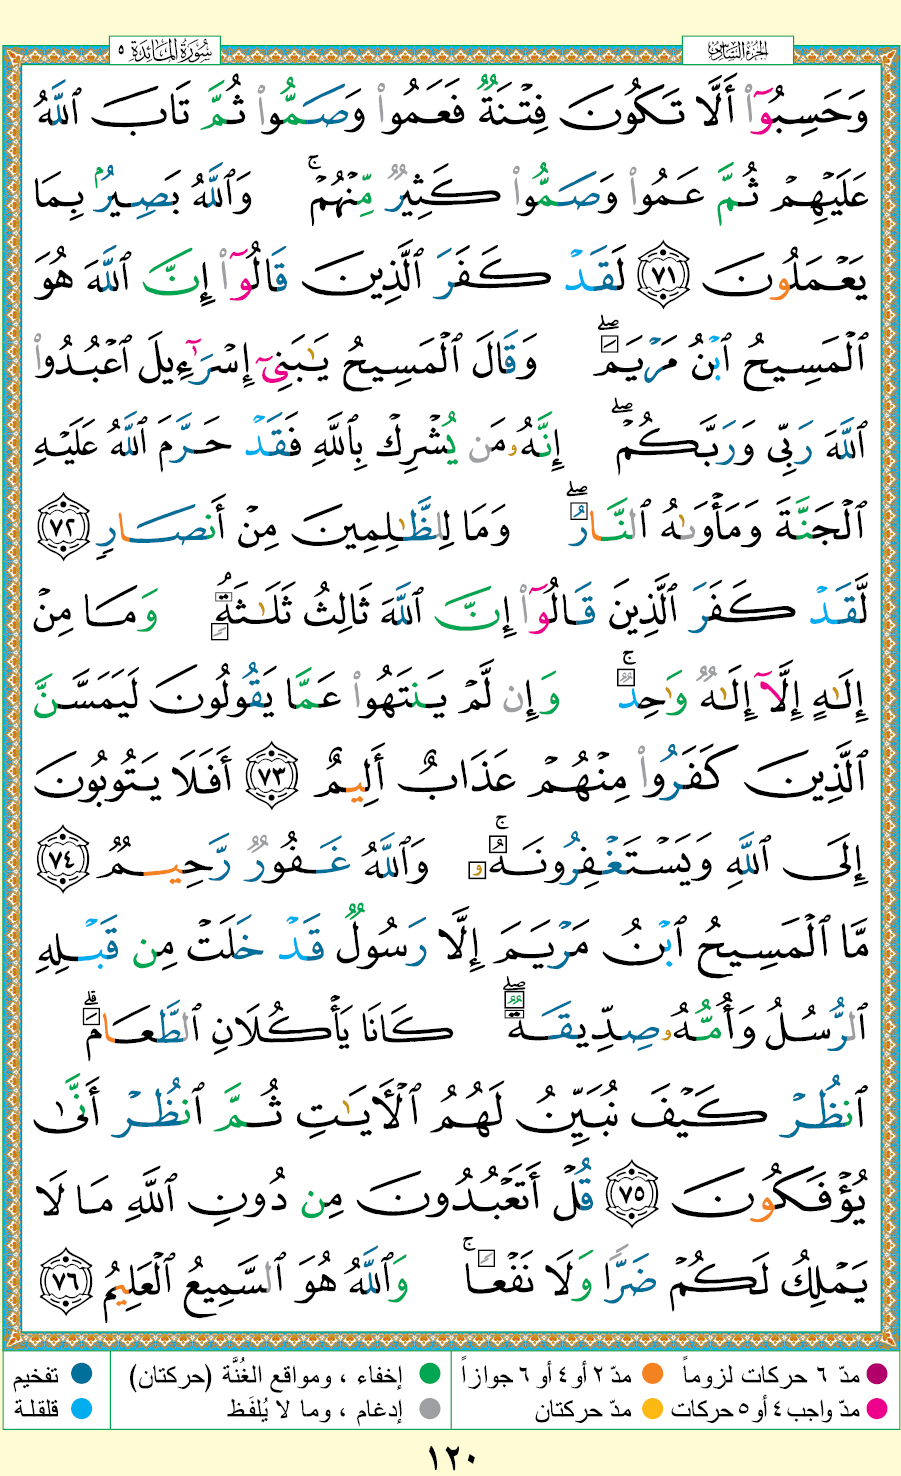 الجزء السادس
سورة المائدة ٥
وَحَسِبُوٓا۟ أَلَّا تَكُونَ فِتْنَةٌ فَعَمُوا۟ وَصَمُّوا۟ ثُمَّ تَابَ ٱللَّهُ
عَلَيْهِمْ ثُمَّ عَمُوا۟ وَصَمُّوا۟ كَثِيرٌ مِّنْهُمْ ۚ وَٱللَّهُ بَصِيرٌۢ بِمَا
يَعْمَلُونَ ٧١ لَقَدْ كَفَرَ ٱلَّذِينَ قَالُوٓا۟ إِنَّ ٱللَّهَ هُوَ
ٱلْمَسِيحُ ٱبْنُ مَرْيَمَ ۖ وَقَالَ ٱلْمَسِيحُ يَـٰبَنِىٓ إِسْرَٰٓءِيلَ ٱعْبُدُوا۟
ٱللَّهَ رَبِّى وَرَبَّكُمْ ۖ إِنَّهُۥ مَن يُشْرِكْ بِٱللَّهِ فَقَدْ حَرَّمَ ٱللَّهُ عَلَيْهِ
ٱلْجَنَّةَ وَمَأْوَىٰهُ ٱلنَّارُ ۖ وَمَا لِلظَّـٰلِمِينَ مِنْ أَنصَارٍ ٧٢
لَّقَدْ كَفَرَ ٱلَّذِينَ قَالُوٓا۟ إِنَّ ٱللَّهَ ثَالِثُ ثَلَـٰثَةٍ وَمَا مِنْ
إِلَـٰهٍ إِلَّآ إِلَـٰهٌ وَٰحِدٌ ۚ وَإِن لَّمْ يَنتَهُوا۟ عَمَّا يَقُولُونَ لَيَمَسَّنَّ
ٱلَّذِينَ كَفَرُوا۟ مِنْهُمْ عَذَابٌ أَلِيمٌ ٧٣ أَفَلَا يَتُوبُونَ
إِلَى ٱللَّهِ وَيَسْتَغْفِرُونَهُۥ ۚ وَٱللَّهُ غَفُورٌ رَّحِيمٌ ٧٤
مَّا ٱلْمَسِيحُ ٱبْنُ مَرْيَمَ إِلَّا رَسُولٌ قَدْ خَلَتْ مِن قَبْلِهِ
ٱلرُّسُلُ وَأُمُّهُۥ صِدِّيقَةٌ ۖ كَانَا يَأْكُلَانِ ٱلطَّعَامَ ۗ
ٱنظُرْ كَيْفَ نُبَيِّنُ لَهُمُ ٱلْـَٔايَـٰتِ ثُمَّ ٱنظُرْ أَنَّىٰ
يُؤْفَكُونَ ٧٥ قُلْ أَتَعْبُدُونَ مِن دُونِ ٱللَّهِ مَا لَا
يَمْلِكُ لَكُمْ ضَرًّا وَلَا نَفْعًا ۚ وَٱللَّهُ هُوَ ٱلسَّمِيعُ ٱلْعَلِيمُ ٧٦
مدّ ٦ حركات لزوماً مدّ ٢ أو ٤ أو ٦ جوازاً إخفاء ، ومواقع الغُنَّة (حركتان) تفخيم
مدّ واجب ٤ أو ٥ حركات مدّ حركتان إدغام ، وما لا يُلفَظ قلقلة
١٢٠